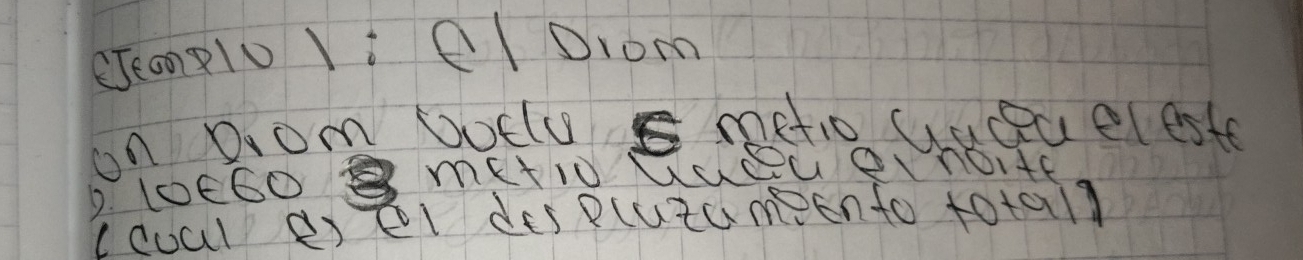 EJEmplo 1: El Drom
un Drom vuela 6 metro hacia el este
y luego 8 metro hacia el norte
¿cual es el desplazamiento total?